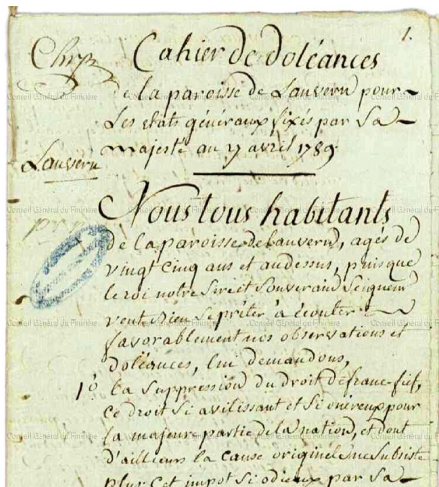 1.
Cahier de doléances
de la paroisse de Lanvern pour
Les etats généraux fixés par Sa
majesté au 27 avril 1789.
Lanvern
Nous tous habitants
de la paroisse de Lanvern, agés de
vingt cinq ans et audessus, puisque
le roi notre Sire et Souverain Seigneur
veut bien se prêter à écouter
favorablement nos observations et
doléances, lui demandons,
1º. la Suppression du droit de franc-fief,
ce droit si avilissant et si onéreux pour
la majeure partie de la nation, et dont
d'ailleurs la cause originele ne subsiste
plus. Cet impot si odieux par sa